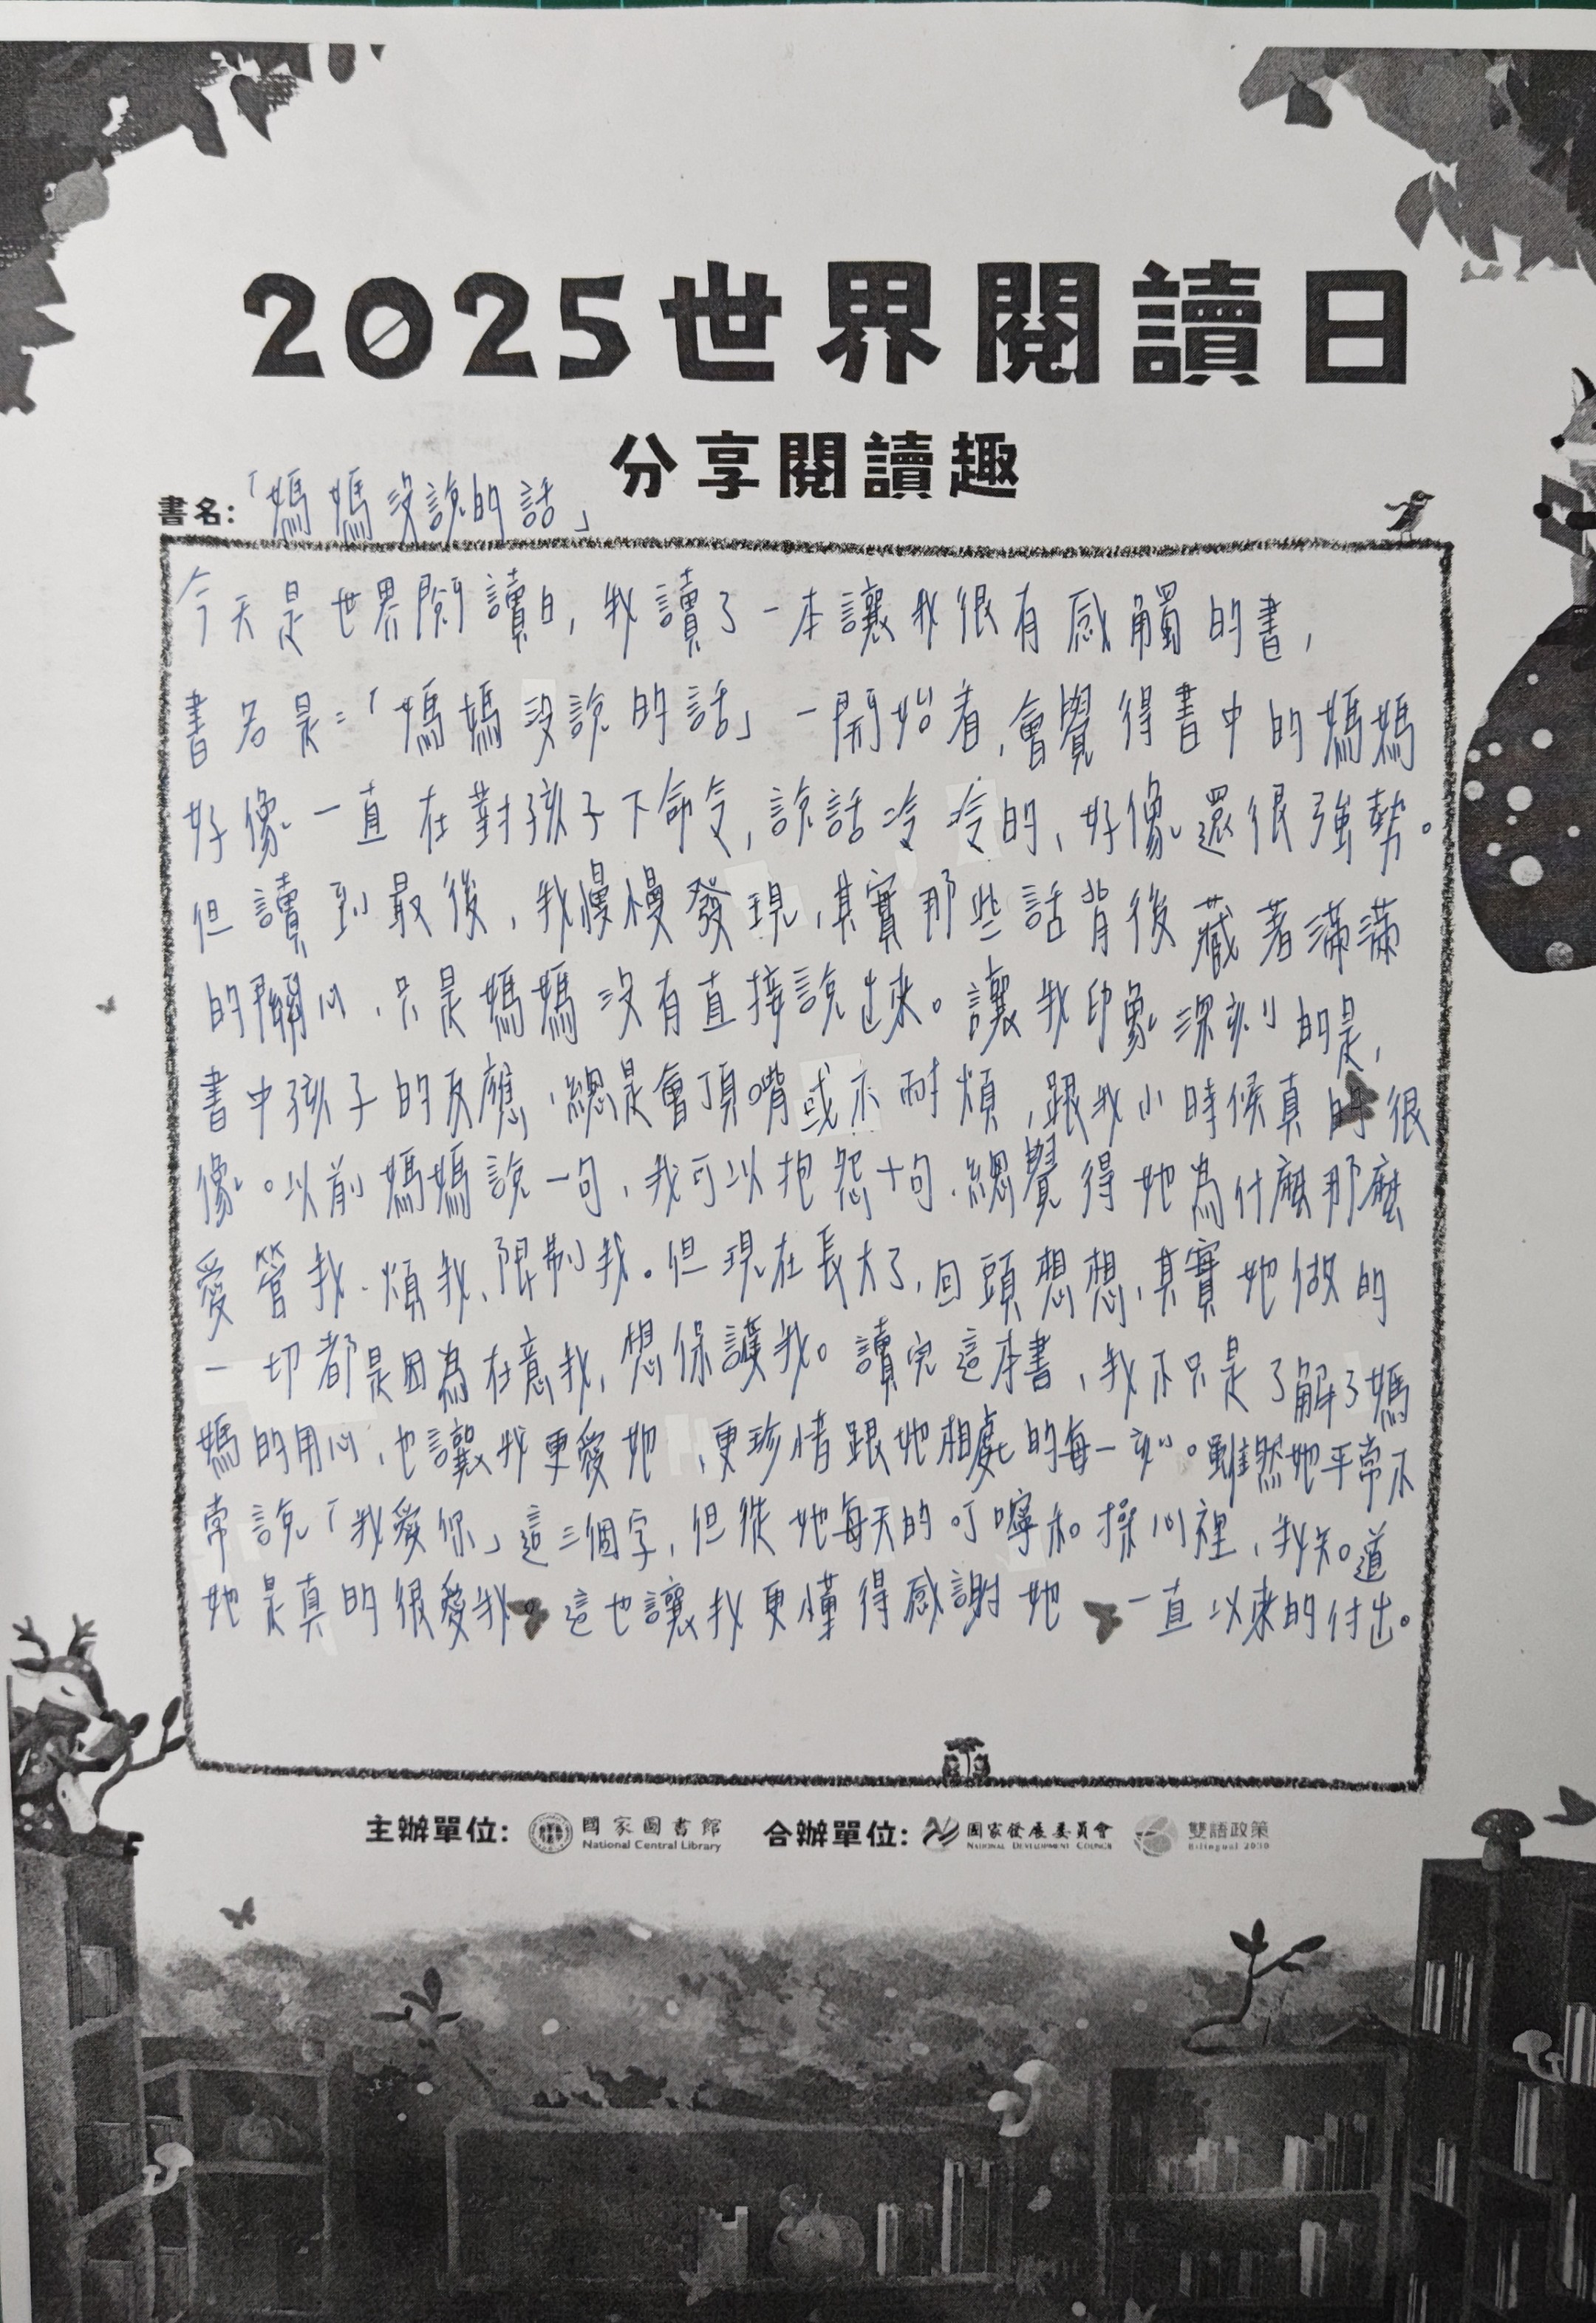 2025世界閱讀日
分享閱讀趣
書名:「媽媽沒說的話」
今天是世界閱讀日,我讀了一本讓我很有感觸的書,
書名是:「媽媽沒說的話」一開始看,會覺得書中的媽媽
好像一直在對孩子下命令,說話冷冷的、好像還很強勢。
但讀到最後,我慢慢發現,其實那些話背後藏著滿滿
的關心,只是媽媽沒有直接說出來。讓我印象深刻的是,
書中孩子的反應,總是會頂嘴或不耐煩,跟我小時候真的很
像。以前媽媽說一句,我可以抱怨十句,總覺得她為什麼那麼
愛管我、煩我、限制我。但現在長大了,回頭想想,其實她做的
一切都是因為在意我,想保護我。讀完這本書,我不只是了解了媽
媽的用心,也讓我更愛她,更珍惜跟她相處的每一刻。雖然她平常不
常說「我愛你」這三個字,但從她每天的叮嚀和操心裡,我知道
她是真的很愛我。這也讓我更懂得感謝她一直以來的付出。
主辦單位: 國家圖書館 National Central Library 合辦單位: 國家發展委員會 NATIONAL DEVELOPMENT COUNCIL 雙語政策 Bilingual 2030